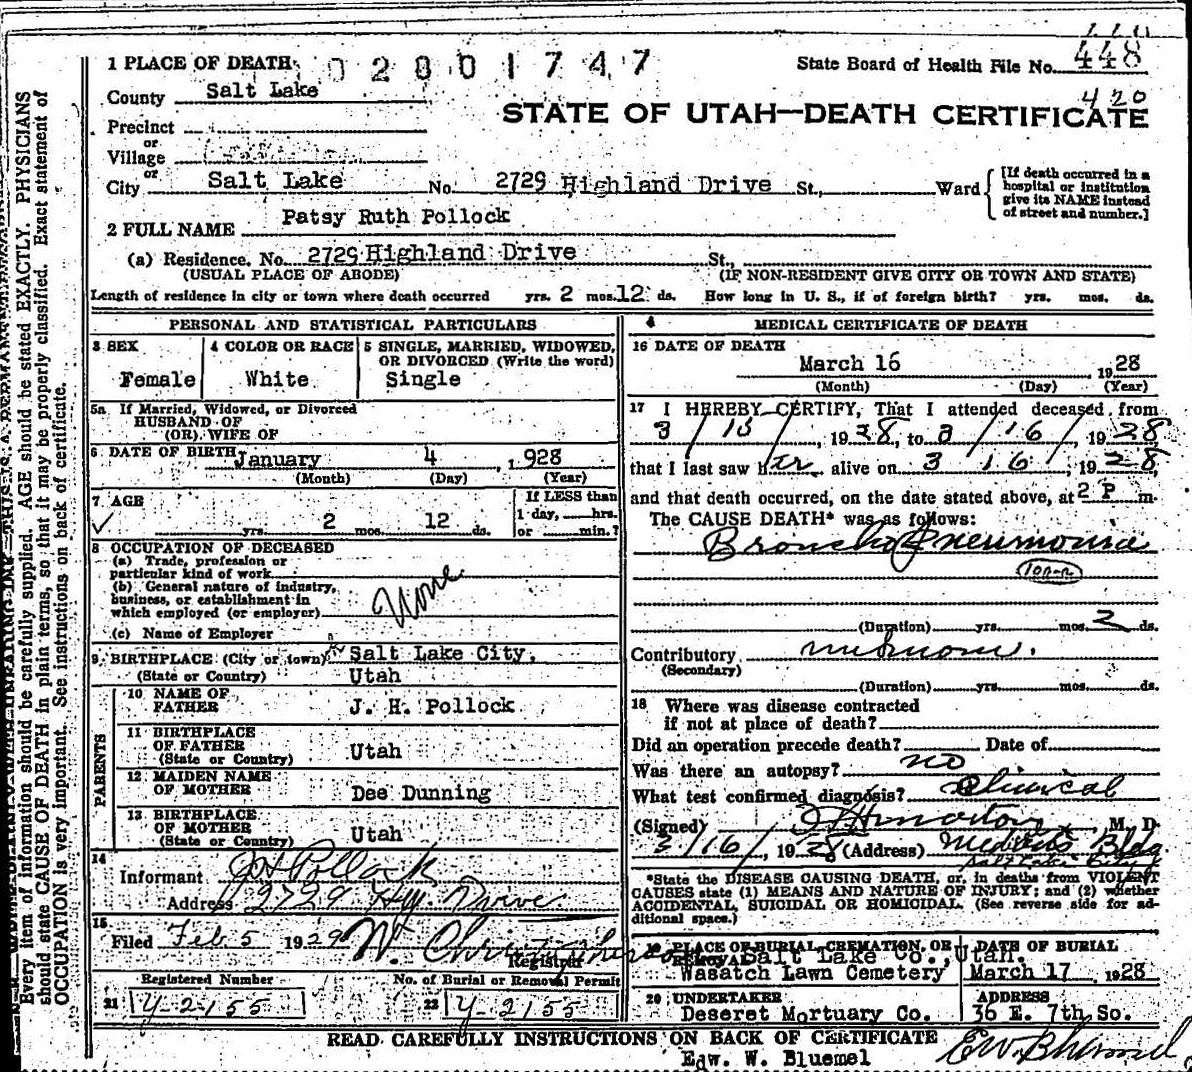 1 PLACE OF DEATH
0 2 8 0 0 1 7 4 7
State Board of Health File No. 448
County Salt Lake
420
STATE OF UTAH—DEATH CERTIFICATE
Precinct
or
Village
or
City Salt Lake No. 2729 Highland Drive St., Ward
[If death occurred in a
hospital or institution
give its NAME instead
of street and number.]
2 FULL NAME Patsy Ruth Pollock
(a) Residence. No. 2729 Highland Drive St.,
(USUAL PLACE OF ABODE) (IF NON-RESIDENT GIVE CITY OR TOWN AND STATE)
Length of residence in city or town where death occurred yrs. 2 mos. 12 ds. How long in U. S., if of foreign birth? yrs. mos. ds.
PERSONAL AND STATISTICAL PARTICULARS
3 SEX
Female
4 COLOR OR RACE
White
5 SINGLE, MARRIED, WIDOWED,
OR DIVORCED (Write the word)
Single
5a If Married, Widowed, or Divorced
HUSBAND OF
(OR) WIFE OF
6 DATE OF BIRTH January 4, 1928
(Month) (Day) (Year)
7 AGE
yrs. 2 mos. 12 ds.
If LESS than
1 day, hrs.
or min.?
8 OCCUPATION OF DECEASED
(a) Trade, profession or
particular kind of work
(b) General nature of industry,
business, or establishment in
which employed (or employer)
None
(c) Name of Employer
9 BIRTHPLACE (City or town) Salt Lake City,
(State or Country) Utah
PARENTS
10 NAME OF
FATHER J. H. Pollock
11 BIRTHPLACE
OF FATHER
(State or Country) Utah
12 MAIDEN NAME
OF MOTHER Dee Dunning
13 BIRTHPLACE
OF MOTHER
(State or Country) Utah
14
Informant J H Pollock
Address 2729 Hy. Drive
15
Filed Feb. 5 1929
Registrar
Registered Number
21 Y-2155
No. of Burial or Removal Permit
22 Y-2155
4 MEDICAL CERTIFICATE OF DEATH
16 DATE OF DEATH
March 16 1928
(Month) (Day) (Year)
17 I HEREBY CERTIFY, That I attended deceased from
3/15, 1928, to 3/16, 1928
that I last saw her alive on 3 16, 1928,
and that death occurred, on the date stated above, at 2 P m.
The CAUSE DEATH* was as follows:
Broncho Pneumonia
(Duration) yrs. mos. 2 ds.
Contributory unknown.
(Secondary)
(Duration) yrs. mos. ds.
18 Where was disease contracted
if not at place of death?
Did an operation precede death? Date of
Was there an autopsy? no
What test confirmed diagnosis? Clinical
(Signed) M. D.
3/16, 1928 (Address) Medical Bldg
Salt Lake City
*State the DISEASE CAUSING DEATH, or, in deaths from VIOLENT
CAUSES state (1) MEANS AND NATURE OF INJURY; and (2) whether
ACCIDENTAL, SUICIDAL OR HOMICIDAL. (See reverse side for ad-
ditional space.)
19 PLACE OF BURIAL, CREMATION, OR
REMOVAL Salt Lake Co., Utah.
Wasatch Lawn Cemetery
DATE OF BURIAL
March 17 1928
20 UNDERTAKER
Deseret Mortuary Co.
ADDRESS
36 E. 7th So.
READ CAREFULLY INSTRUCTIONS ON BACK OF CERTIFICATE
Edw. W. Bluemel
Every item of information should be carefully supplied. AGE should be stated EXACTLY. PHYSICIANS
should state CAUSE OF DEATH in plain terms, so that it may be properly classified. Exact statement of
OCCUPATION is very important. See instructions on back of certificate.